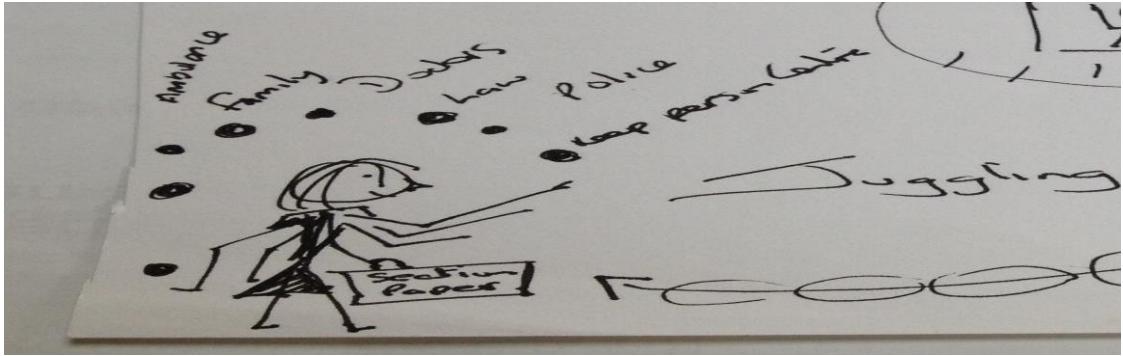 Ambulance
Family
Doctors
Law
Police
Keep person Centre
Juggling
Section
Paper